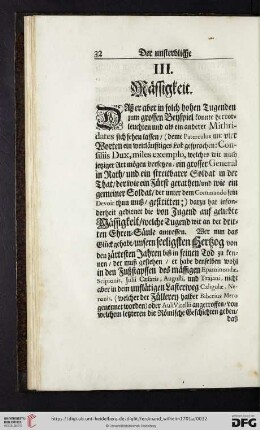 32 Der unsterbliche
III.
Mässigkeit.
DAß er aber in solch hohen Tugenden
zum grossen Beyspiel konnte hervor-
leuchten und als ein anderer Mithri-
dates sich sehen lassen / (deme Paterculus mit vier
Worten ein weitläufftiges Lob gesprochen: Con-
siliis Dux, miles exemplo, welches wir nach
jetziger Art mögen verstehen / ein grosser General
in Rath/ und ein streitbarer Soldat in der
That/ der wie ein Fürst gerathen/ und wie ein
gemeiner Soldat/ der unter dem Commando sein
Devoir thun muß/ gestritten;) darzu hat inson-
derheit gedienet die von Jugend auf geliebte
Mässigkeit/ welche Tugend wir an der drit-
ten Ehren-Säule antreffen. Wer nun das
Glück gehabt/ unsern seeligsten Hertzog von
den zärtesten Jahren biß in seinen Tod zu ken-
nen/ der muß gestehen / er habe denselben wohl
in den Fußstapffen des mässigen Epaminondæ,
Scipionis, Julii Cæsaris, Augusti, und Trajani, nicht
aber in dem unflätigen Lasterweg Caligulæ, Ne-
ronis, (welcher der Füllerey halber Biberius Mero
genennet worden) oder Auli Vitellii angetroffen/ von
welchem letzteren die Römische Geschichten geben/
daß
https://digi.ub.uni-heidelberg.de/diglit/ferdinand_wilhelm1701a/0032
DFG